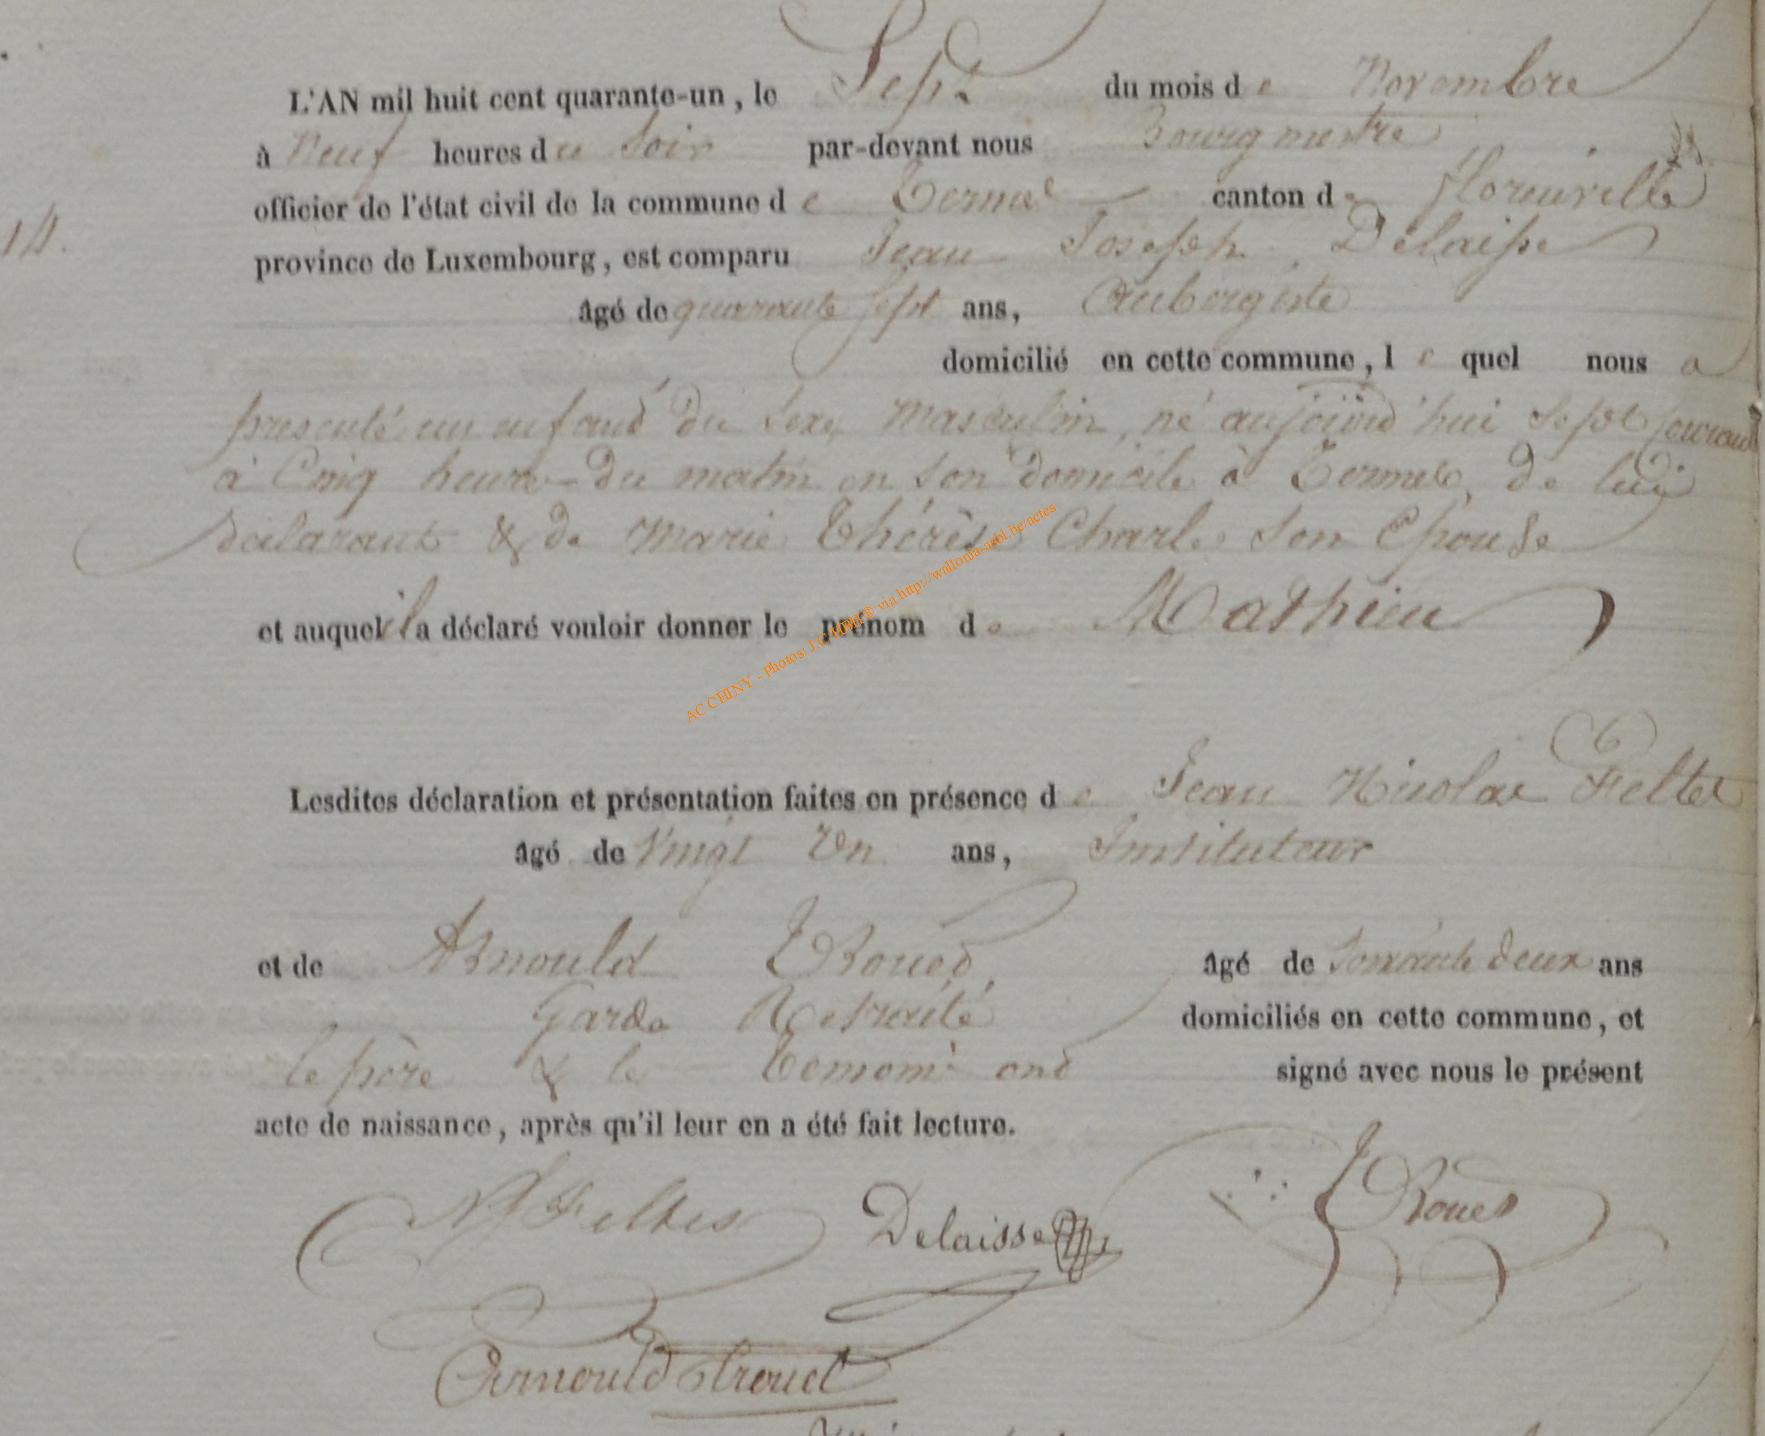 L'AN mil huit cent quarante-un, le Sept du mois de Novembre
à Neuf heures du Soir par-devant nous Bourgmestre
officier de l'état civil de la commune de Termes canton de florenville
14.
province de Luxembourg, est comparu Jean Joseph Delaisse
âgé de quarante sept ans, Aubergiste
domicilié en cette commune, le quel nous a
presenté un enfant du sexe Masculin, né aujourd'hui Sept courant
à Cinq heures du matin en son domicile à Termes, de lui
déclarant & de Marie Thérèse Charle son Epouse
et auquel il a déclaré vouloir donner le prénom de Mathieu
AC CHINY - Photos: via http://wallonia-asbl.be/actes
Lesdites déclaration et présentation faites en présence de Jean Nicolas Feltes
âgé de Vingt Un ans, Instituteur
et de Arnould Troued, âgé de Soixante deux ans
Garde Retraité domiciliés en cette commune, et
le père & les temoins ont signé avec nous le présent
acte de naissance, après qu'il leur en a été fait lecture.
Feltes Delaisse
Arnould Trouet